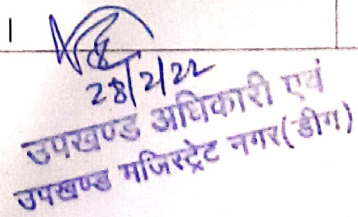 28/2/22
उपखण्ड अधिकारी एवं
उपखण्ड मजिस्ट्रेट नगर(डीग)